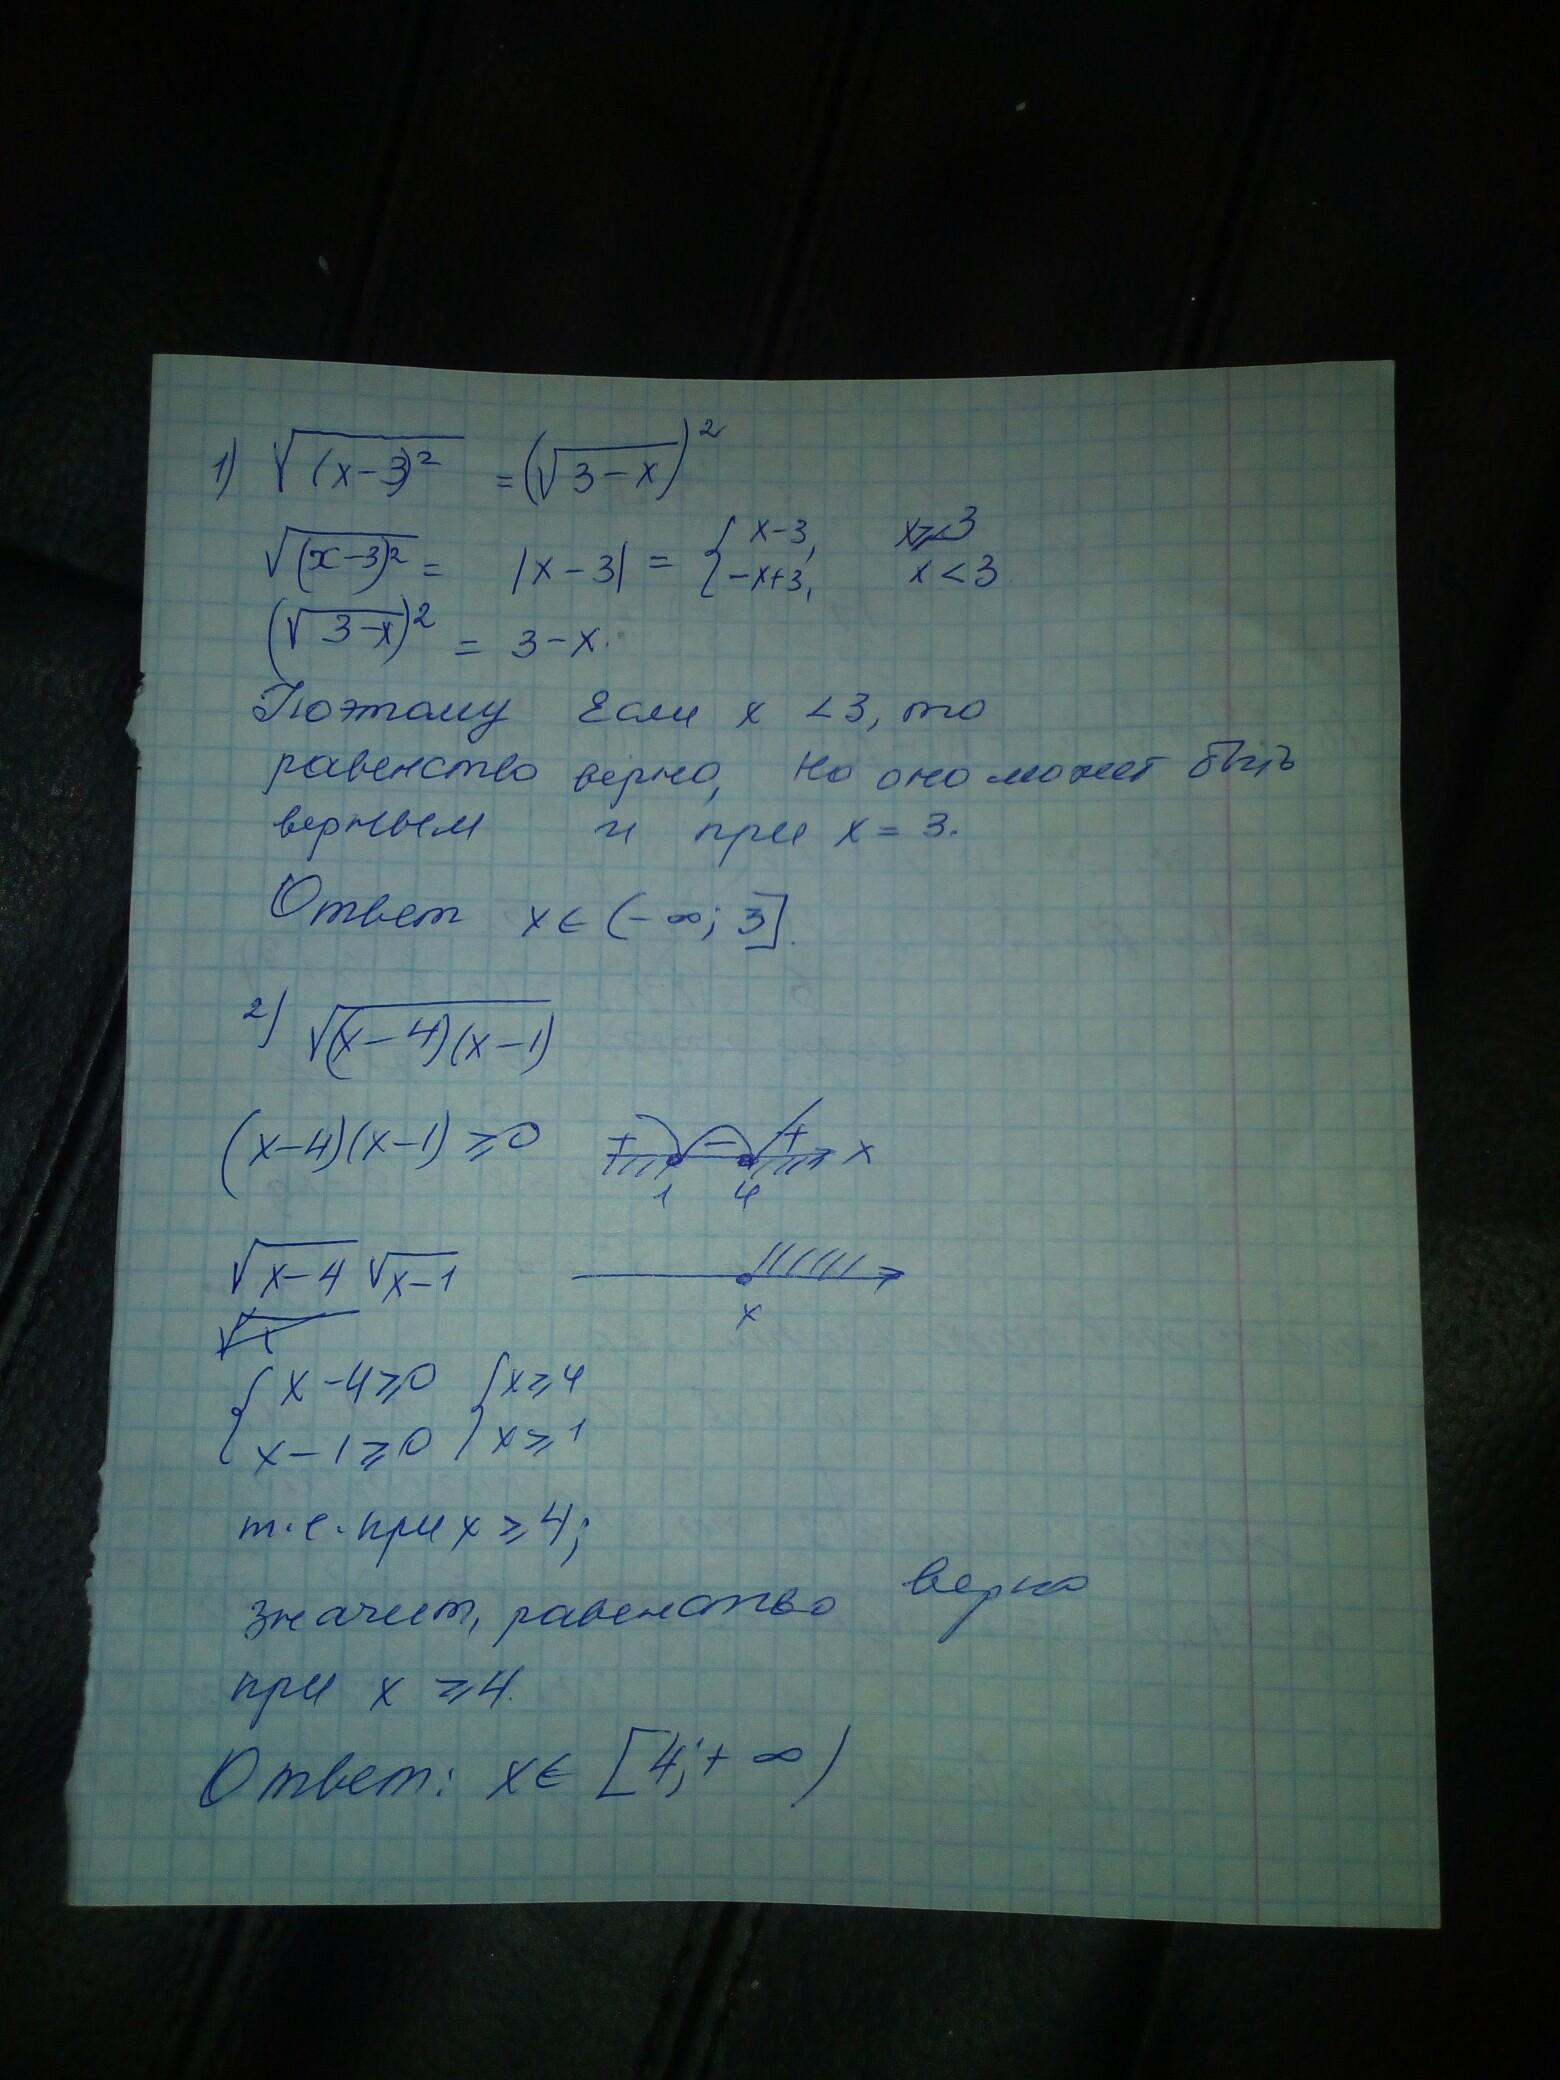 1) √(x-3)² = (√3-x)²
√(x-3)² = |x-3| = { x-3, x≥3
-x+3, x<3
(√3-x)² = 3-x.
Поэтому Если x <3, то
равенство верно, но оно может быть
верным и при x = 3.
Ответ x∈(-∞; 3].
2) √(x-4)(x-1)
(x-4)(x-1) ≥0 + - + x
1 4
√x-4 √x-1
x
{ x-4≥0 { x≥4
x-1≥0 x≥1
т.е. при x ≥4;
значит, равенство верно
при x ≥4.
Ответ: x∈ [4; +∞)